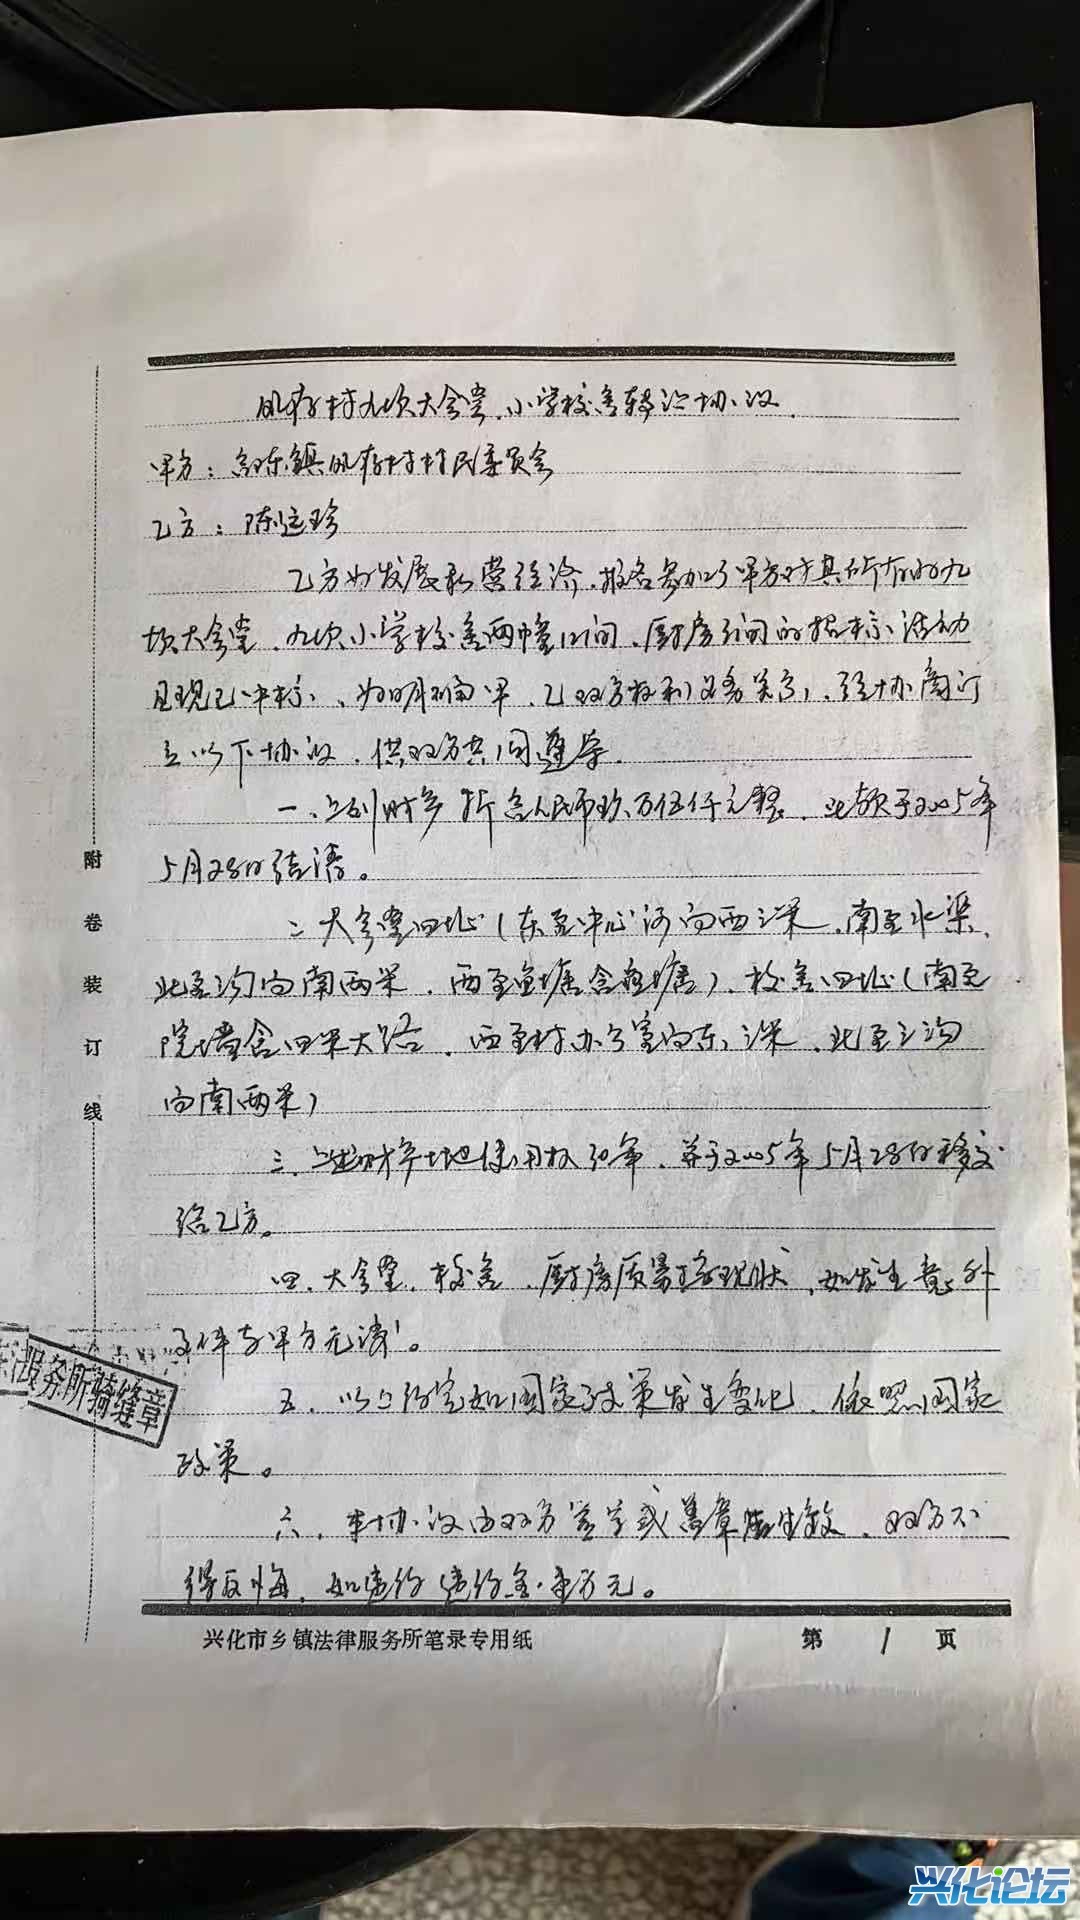 村九顷大会堂、小学校舍转让协议
甲方：镇村村民委员会
乙方：陈远珍
乙方为发展私营经济，报名参加了甲方对其所有的九
顷大会堂、九顷小学校舍两幢12间、厨房3间的招标活动
且现已中标，为明确甲、乙双方权利义务关系，经协商订
立以下协议，供双方共同遵守。
一、上列财产折合人民币玖万伍仟元整，此款于2005年
5月28日结清。
二、大会堂四址（东至中心河向西三米，南至水渠，
北至沟向南两米，西至鱼塘含鱼塘），校舍四址（南至
院墙含四米大路，西至村办公室向东三米，北至沟
向南两米）
三、上述财产土地使用权50年，并于2005年5月28日移交
给乙方。
四、大会堂、校舍、厨房质量按现状，如发生意外
事件与甲方无涉。
五、以上约定如国家政策发生变化，依照国家
政策。
六、本协议由双方签字或盖章后生效，双方不
得反悔，如违约违约金壹万元。
附卷装订线
服务所骑缝章
兴化市乡镇法律服务所笔录专用纸 第 1 页
兴化论坛